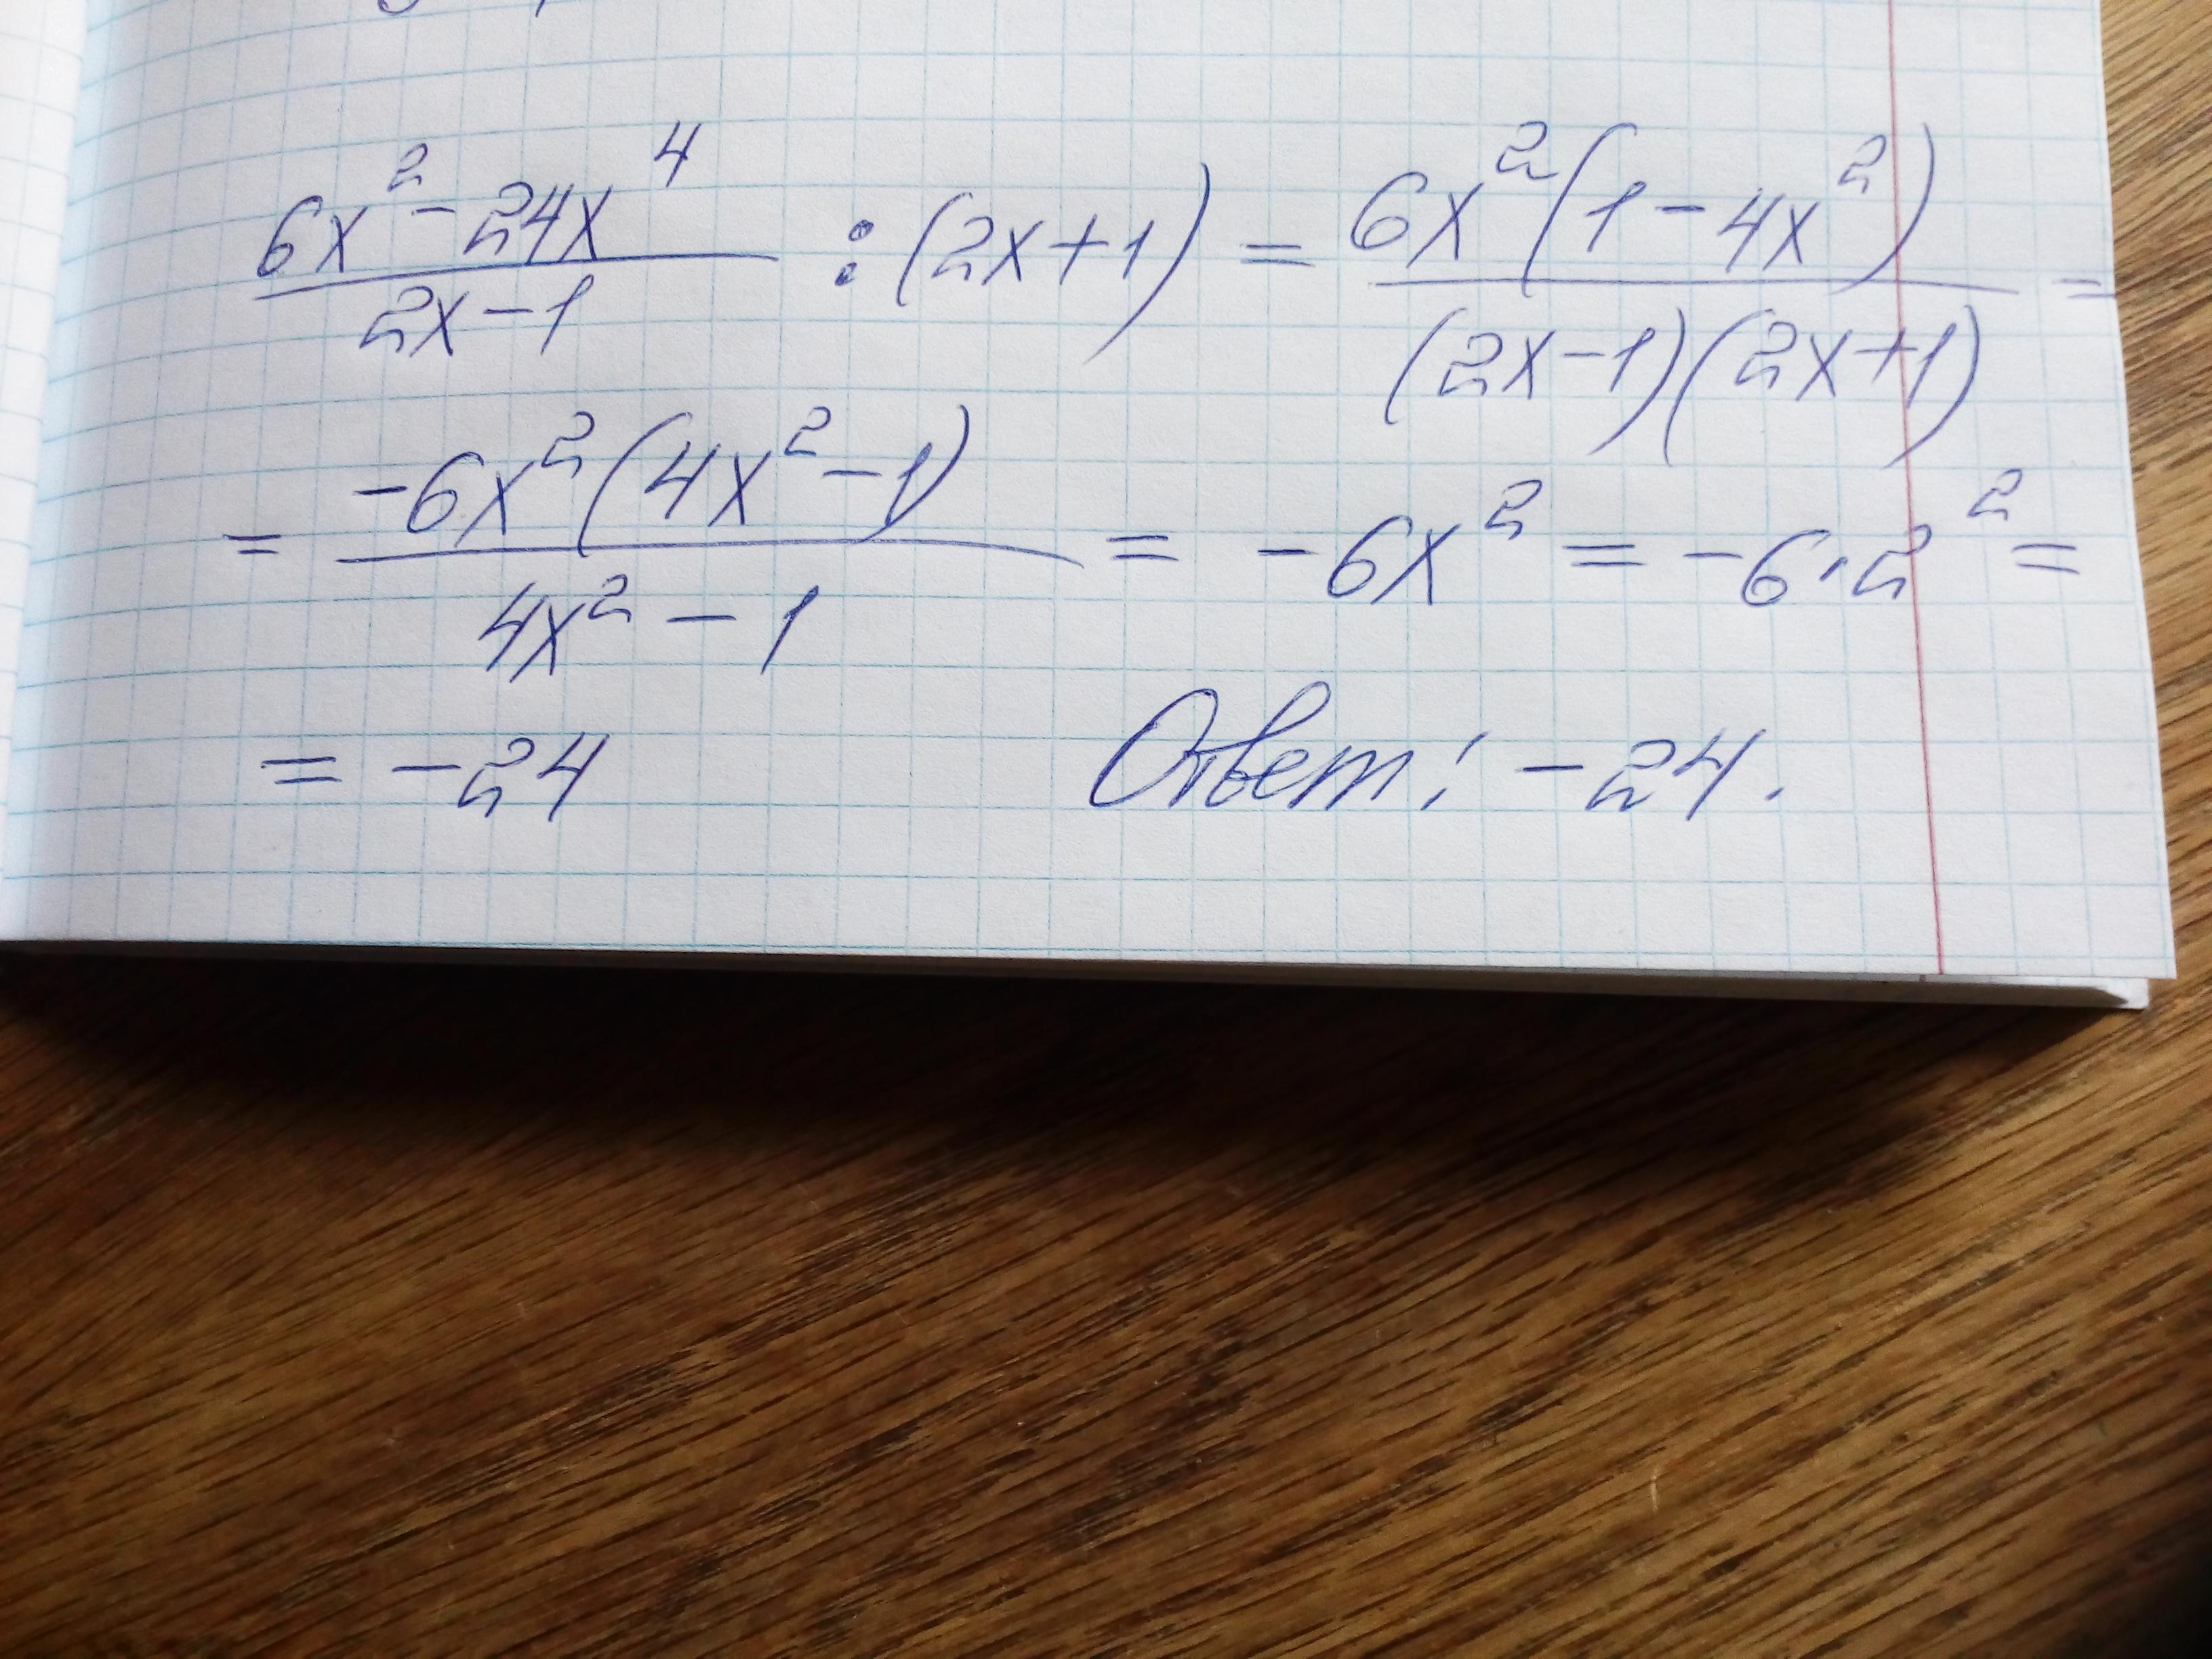 (6x² - 24x⁴)/(2x - 1) : (2x + 1) = 6x²(1 - 4x²)/((2x - 1)(2x + 1)) =
= -6x²(4x² - 1)/(4x² - 1) = -6x² = -6 · 2² =
= -24 Ответ: -24.